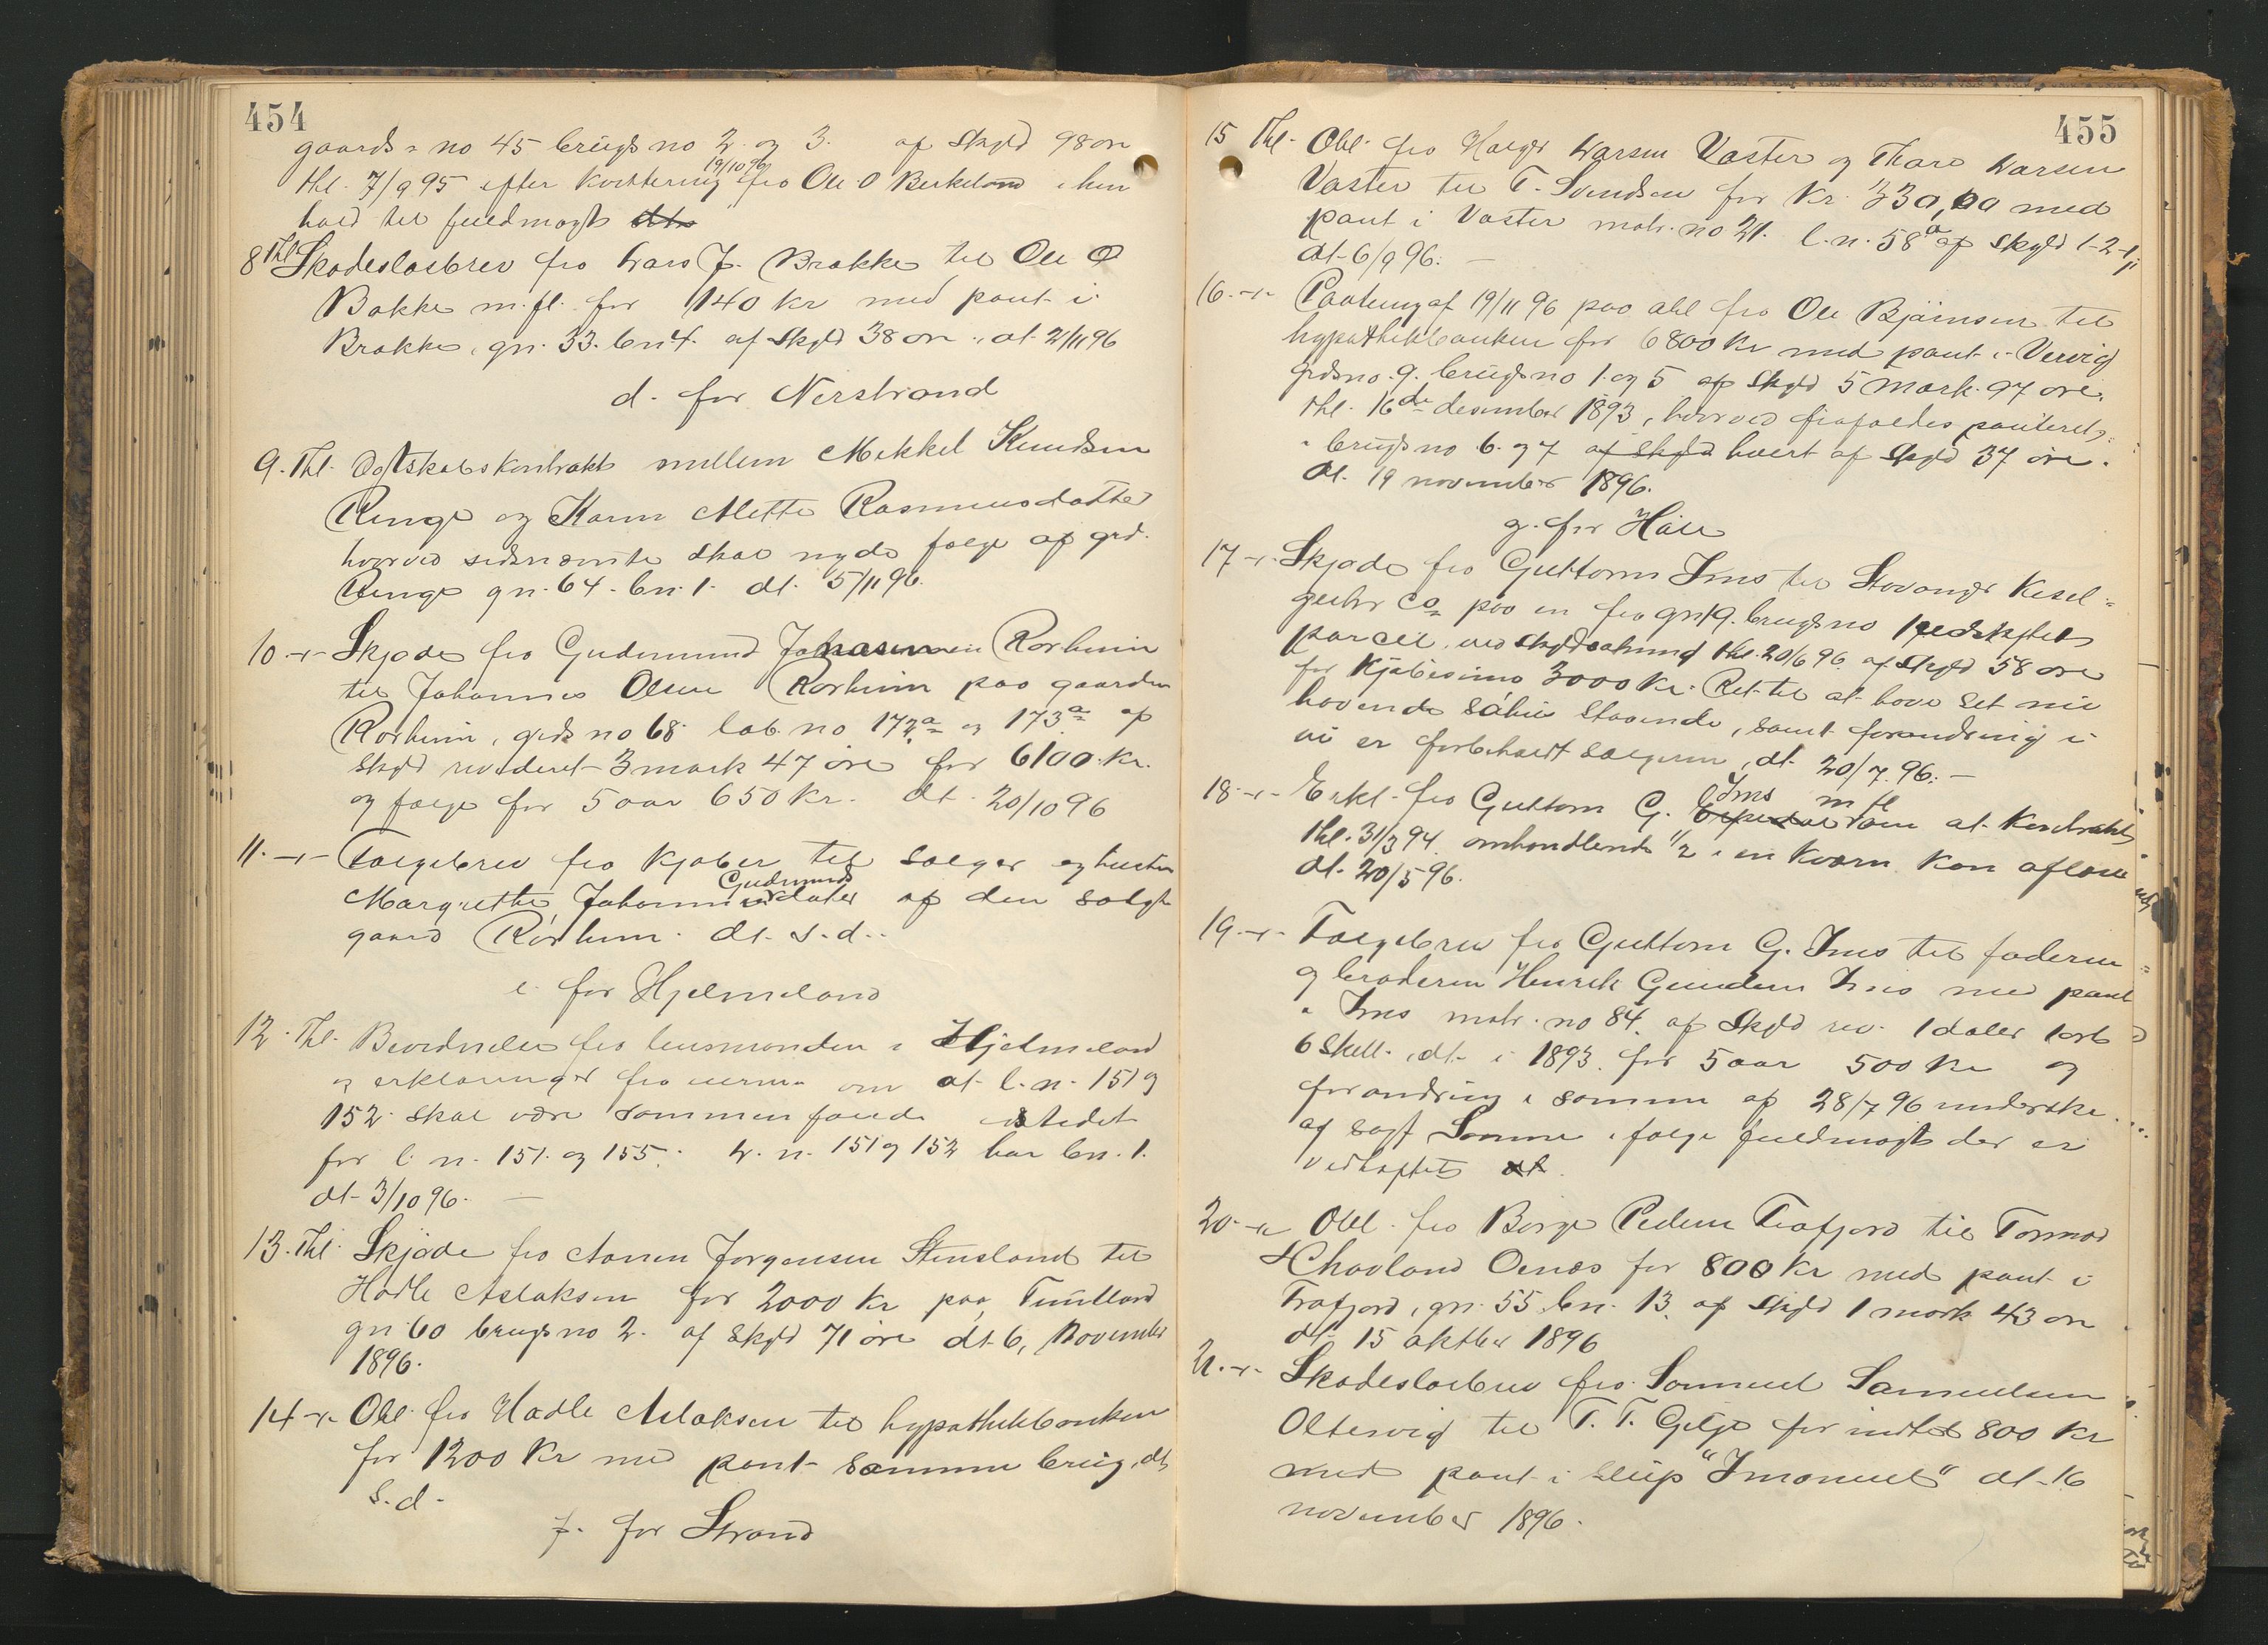 454
gaards no 45 brugs no 2 og 3. af Skyld 98 øre
thl. 7/9 95 efter kvittering 19/10 96 fra Ole O Berkeland i hen
hold til fuldmagt
8 Thl. Skadesløsbrev fra Lars J. Brakke til Ole O
Bakke m. fl. for 140 kr med pant i
Brakke, gn. 33. bn 4. af Skyld 38 øre, dt. 2/11 96
d. for Nerstrand
9. Thl. Ægtskabskontrakt mellem Mikkel Knudsen
Ringe og Karen Mette Rasmusdatter
hvorved sidsnævnte skal nyde følge af grd.
Ringe gn. 64. bn. 1. dt. 5/11 96.
10 -"- Skjøde fra Gudmund Johannesen Rørheim
til Johannes Olsen Rørheim paa gaarden
Rørheim, grds no 68 løb. no 172a og 173a af
skyld revideret 3 mark 47 øre for 6100 kr.
og følge for 5 aar 650 kr. dt. 20/10 96
11. -"- Følgebrev fra kjøber til sælger og hustru
Margrethe Gudmundsdatter af den solgte
gaard Rørheim. dt. s.d.
e. for Hjelmeland
12. Thl. Beordrelse fra lensmanden i Hjelmeland
og erklæringer fra eierne om at l. n. 151 og
152 skal være sammenføiede istedet
for l. n. 151. og 155. L. n. 151 og 152 har bn. 1.
dt. 3/10 96.
13. Thl. Skjøde fra Aanen Jørgensen Stensland til
Hadle Aslaksen for 2000 kr paa Tunlland
gn 60 brugs no 2. af skyld 71 øre dt. 6, November
1896.
14 -"- Obl. fra Hadle Aslaksen til hypothekbanken
for 1200 kr med pant samme brug, dt
s. d.
f. for Strand
455
15 Thl. Obl. fra Holger Larsen Vaster og Thore Larsen
Vaster til T. Svendsen for kr. 330,00 med
pant i Vaster matr. no 21. l. n. 58a af skyld 1-2-11
dt. 6/9 96.
16. -"- Paategn af 19/11 96 paa obl fra Ole Bjørnsen til
hypothekbanken for 6800 kr med pant i Vervig
grdsno. 9. brugs no 1. og 5 af skyld 5 mark 97 øre.
thl. 16de desember 1893, hvorved frafaldes panteret
i brugs no 6. og 7 af skyld hvert af skyld 37 øre.
dt. 19 november 1896.
g. for Høle
17 -"- Skjøde fra Guttorm Ims til Stavanger Kisel-
guhr Co paa en fra gn 19. brugs no 1 fradskyldt
parcel, ved skyldsætning thl. 20/6 96. af skyld 58 øre
for kjøbesum 3000 kr. Ret til at have set nu
havende staaende, samt forandring i
vei er forbeholdt sælgeren, dt. 20/7. 96.
18. -"- Erkl. fra Guttorm G. Ims m fl om at kontrakt
thl. 31/3 94. omhandlende 1/2 i en kværn kan aflæses
dt. 20/5 96.
19. -"- Følgebrev fra Guttorm G. Ims til faderen
og broderen Henrik Ims med pant
i Ims matr. no 84. af skyld rev. 1 daler 1 ort
6 skill. dt. i 1893. for 5 aar 500 kr og
forandring i samme af 28/7 96 underskr.
af sagf Sømme i følge fuldmagt der er
vedhæftet dt.
20. -"- Obl. fra Børge Pedersen Frafjord til Tormod
Chavland Oenæs for 800 kr med pant i
Frafjord, gn. 55. bn. 13. af skyld 1 mark 43 øre
dt. 15 oktber 1896
21. -"- Skadesløsbrev fra Samuel Samuelsen
Oltesvig til T. T. Gilje for indtil 800 kr
med pant i slup "Imanuel" dt. 16
november 1896.